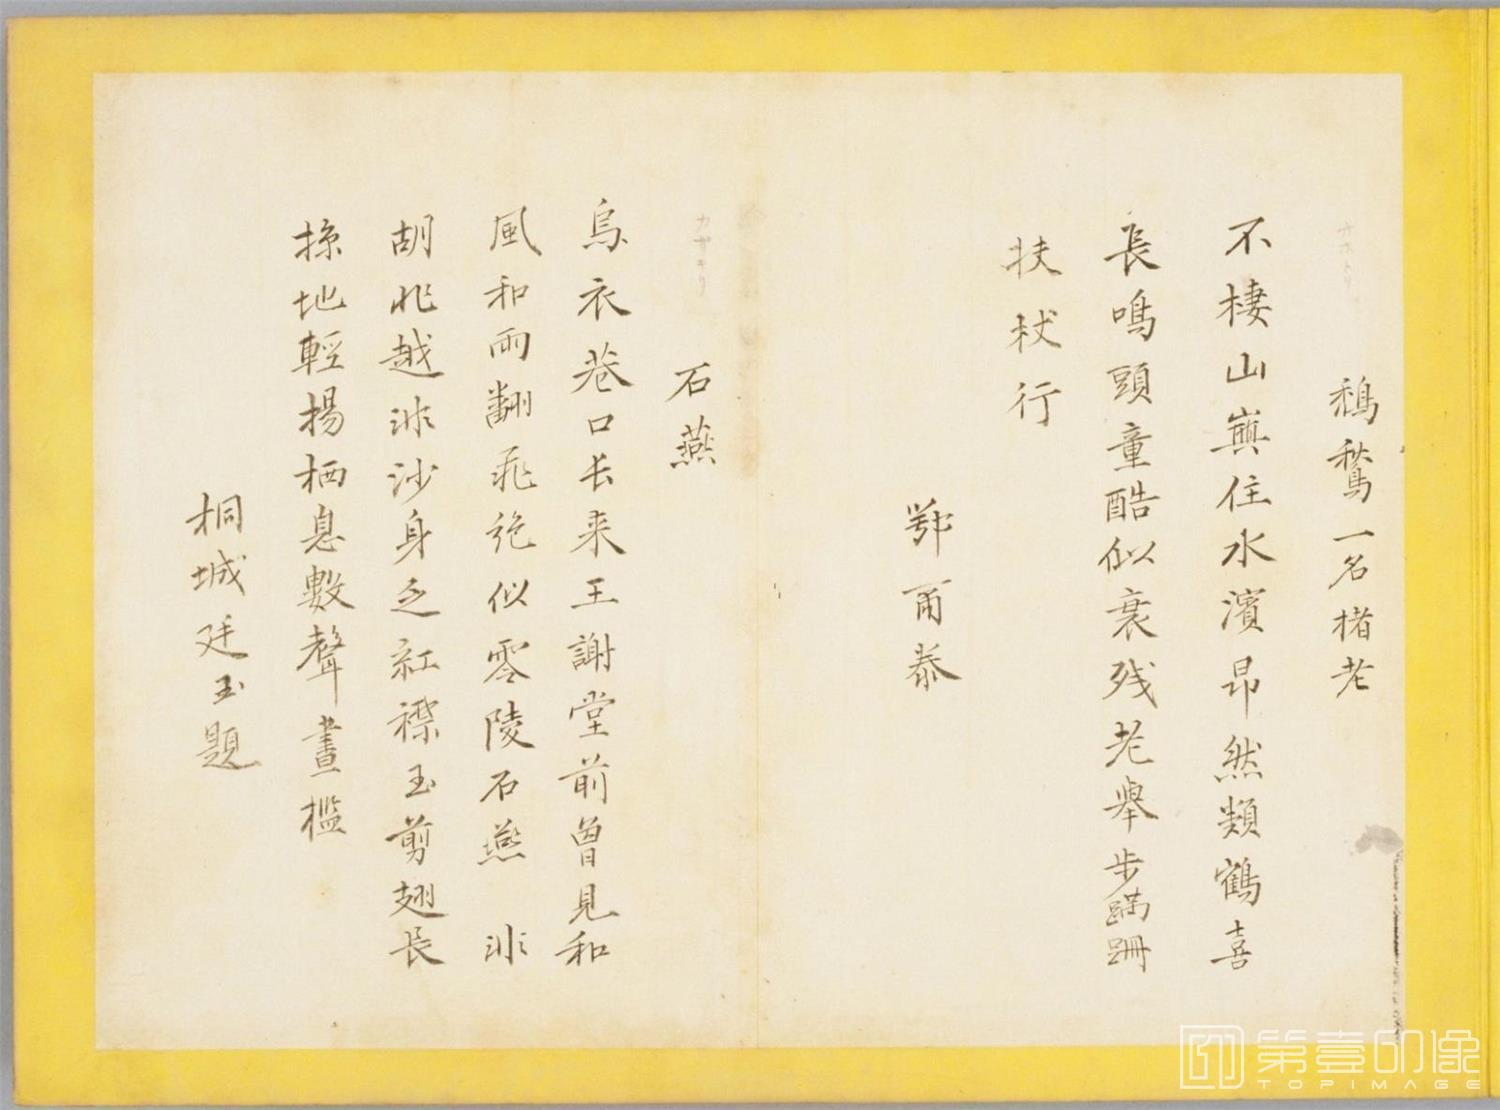 鵚鶖一名楮老
不棲山嶼住水濱昂然類鶴喜
長鳴頭童酷似衰残老舉步蹣跚
扶杖行
鄂爾泰
石燕
烏衣巷口长来王謝堂前曾見和
風和雨翻飛絶似零陵石燕 非
胡非越非沙身乏紅襟玉剪翅長
掠地輕揚栖息數聲畫檻
桐城廷玉題
第壹印像
TOPIMAGE